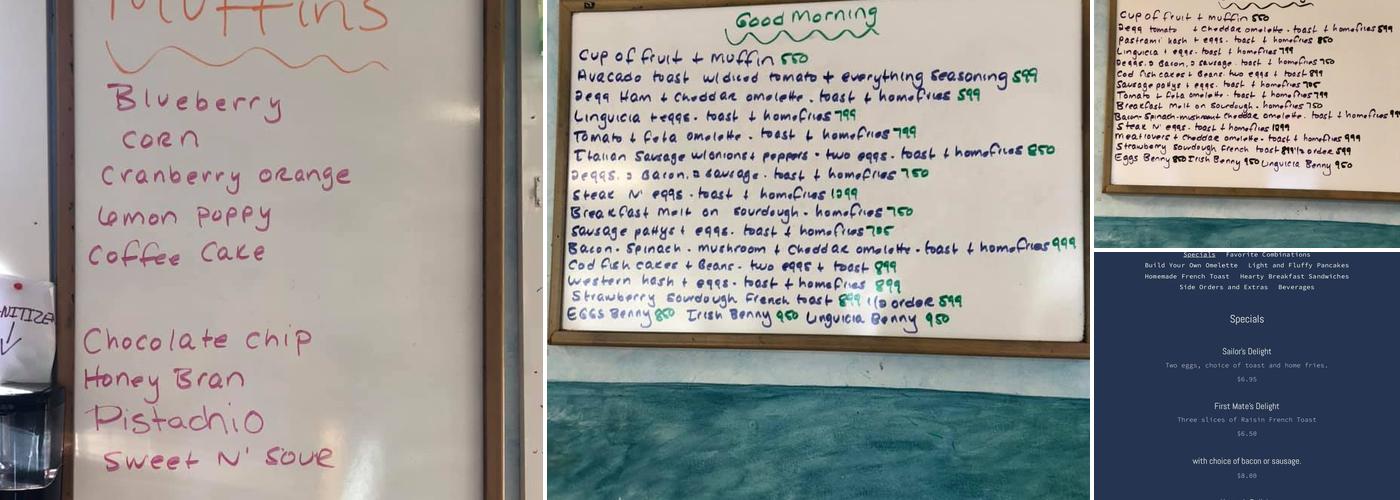 Muffins
Blueberry
corn
Cranberry orange
Lemon poppy
Coffee Cake
Chocolate chip
Honey Bran
Pistachio
Sweet N' Sour
NITIZE
Good Morning
Cup of fruit + muffin 550
Avacado toast w/diced tomato + everything seasoning 599
2egg Ham + Cheddar omelette. toast + homefries 599
Linguicia + eggs. toast + homefries 799
Tomato + Feta omelette. toast + homefries 799
Italian Sausage w/onions + peppers. two eggs. toast + homefries 850
2eggs. 2 Bacon. 2 sausage. toast + homefries 750
Steak N' eggs. toast + homefries 1299
Breakfast melt on sourdough. homefries 750
Sausage pattys + eggs. toast + homefries 705
Bacon. Spinach. mushroom + Cheddar omelette. toast + homefries 999
Cod fish cakes + Beans. two eggs + toast 899
Western hash + eggs. toast + homefries 899
Strawberry Sourdough French toast 899 1/2 order 599
EGGS Benny 850 Irish Benny 950 Linguicia Benny 950
Cup of fruit + muffin 550
2egg tomato + Cheddar omelette. toast + homefries 599
Pastrami hash + eggs. toast + homefries 850
Linguicia + eggs. toast + homefries 799
2eggs. 2 Bacon, 2 sausage. toast + homefries 750
Cod fish cakes + Beans two eggs + toast 899
Sausage pattys + eggs. toast + homefries 705
Tomato + Feta omelette. toast + homefries 799
Breakfast melt on sourdough. homefries 750
Bacon-Spinach-mushroom + Cheddar omelette. toast + homefries
Steak N' eggs. toast + homefries 1299
meatlovers + cheddar omelette. toast + homefries 999
Strawberry Sourdough French toast 899 1/2 order 599
Eggs Benny 850 Irish Benny 950 Linguicia Benny 950
Specials Favorite Combinations
Build Your Own Omelette Light and Fluffy Pancakes
Homemade French Toast Hearty Breakfast Sandwiches
Side Orders and Extras Beverages
Specials
Sailor's Delight
Two eggs, choice of toast and home fries.
$6.95
First Mate's Delight
Three slices of Raisin French Toast
$6.50
with choice of bacon or sausage.
$8.00